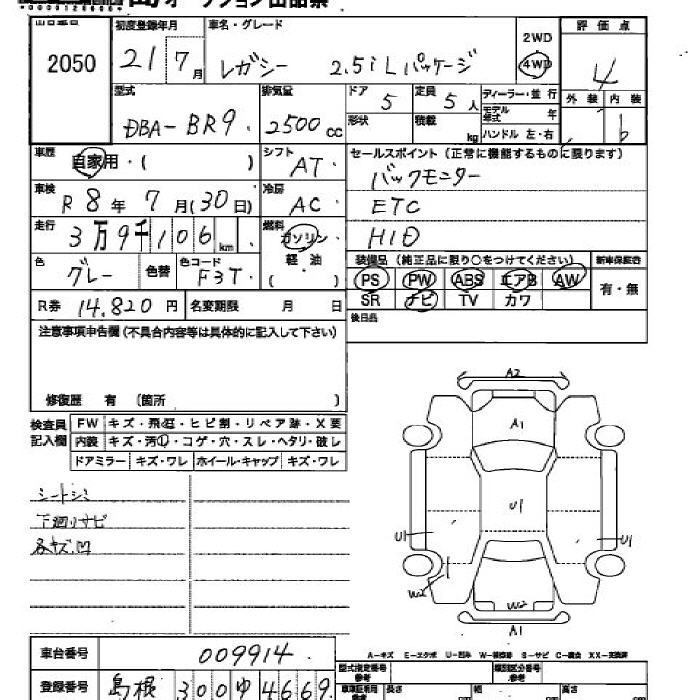 オークション出品票
出品番号 初度登録年月 車名・グレード 2WD 評価点
2050 21 7月 レガシー 2.5iLパッケージ 4WD 4
型式 排気量 ドア 5 定員 5人 ディーラー・並行 外装 内装
DBA-BR9 2500cc 形状 積載 kg モデル年式 年 b
ハンドル 左・右
車歴 自家用・( ) シフト AT セールスポイント(正常に機能するものに限ります)
車検 R8年7月(30日) 冷房 AC バックモニター
ETC
走行 3万9千106km 燃料 ガソリン HID
軽油
( )
色 グレー 色替 色コード F3T 装備品(純正品に限り○をつけてください) 新車保証書
PS PW ABS エアB AW 有・無
R券 14,820円 名変期限 月 日 SR ナビ TV カワ
注意事項申告欄(不具合内容等は具体的に記入して下さい) 後日品
修復歴 有 (箇所 )
検査員記入欄 FW キズ・飛石・ヒビ割・リペア跡・X要
内装 キズ・汚・コゲ・穴・スレ・ヘタリ・破レ
ドアミラー キズ・ワレ ホイール・キャップ キズ・ワレ
シートシミ
下廻りサビ
各キズ凹
A2
A1
U1
U1 U1
W2
W2
A1
A-キズ E-エクボ U-凹み W-補修跡 S-サビ C-腐食 XX-交換済
車台番号 009914 型式指定番号 参考 類別区分番号 参考
登録番号 島根 300 ゆ 4669 長さ cm 幅 cm 高さ cm